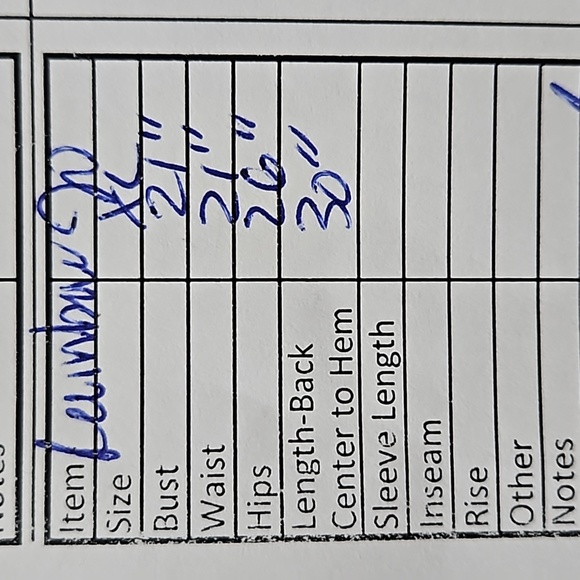 Item
Size XL
Bust 21"
Waist 21"
Hips 26"
Length-Back
Center to Hem 30"
Sleeve Length
Inseam
Rise
Other
Notes